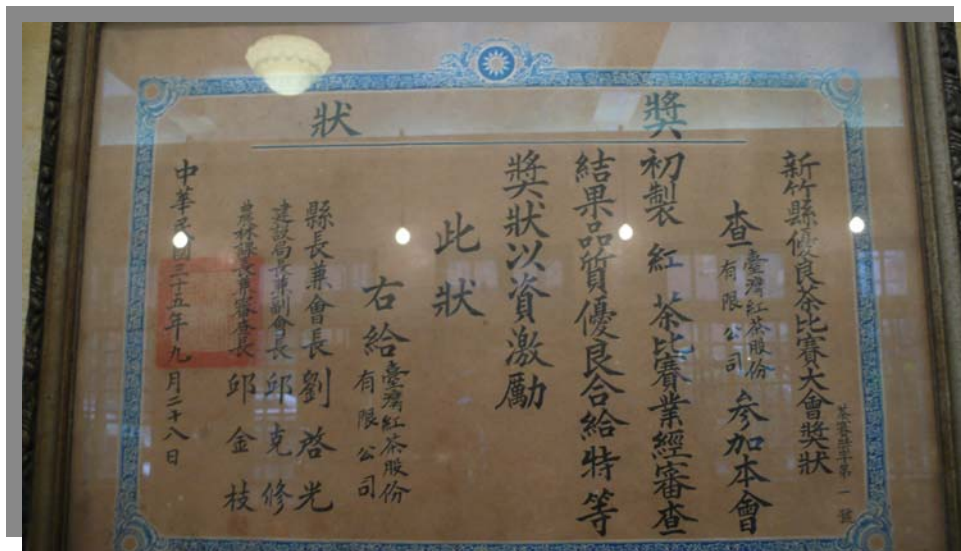 獎狀
新竹縣優良茶比賽大會獎狀
茶審獎字第一號
查臺灣紅茶股份有限公司參加本會
初製紅茶比賽業經審查
結果品質優良合給特等
獎狀以資激勵
此狀
右給臺灣紅茶股份有限公司
縣長兼會長劉啓光
建設局長兼副會長邱克修
農林課長兼審查長邱金枝
中華民國三十五年九月二十八日